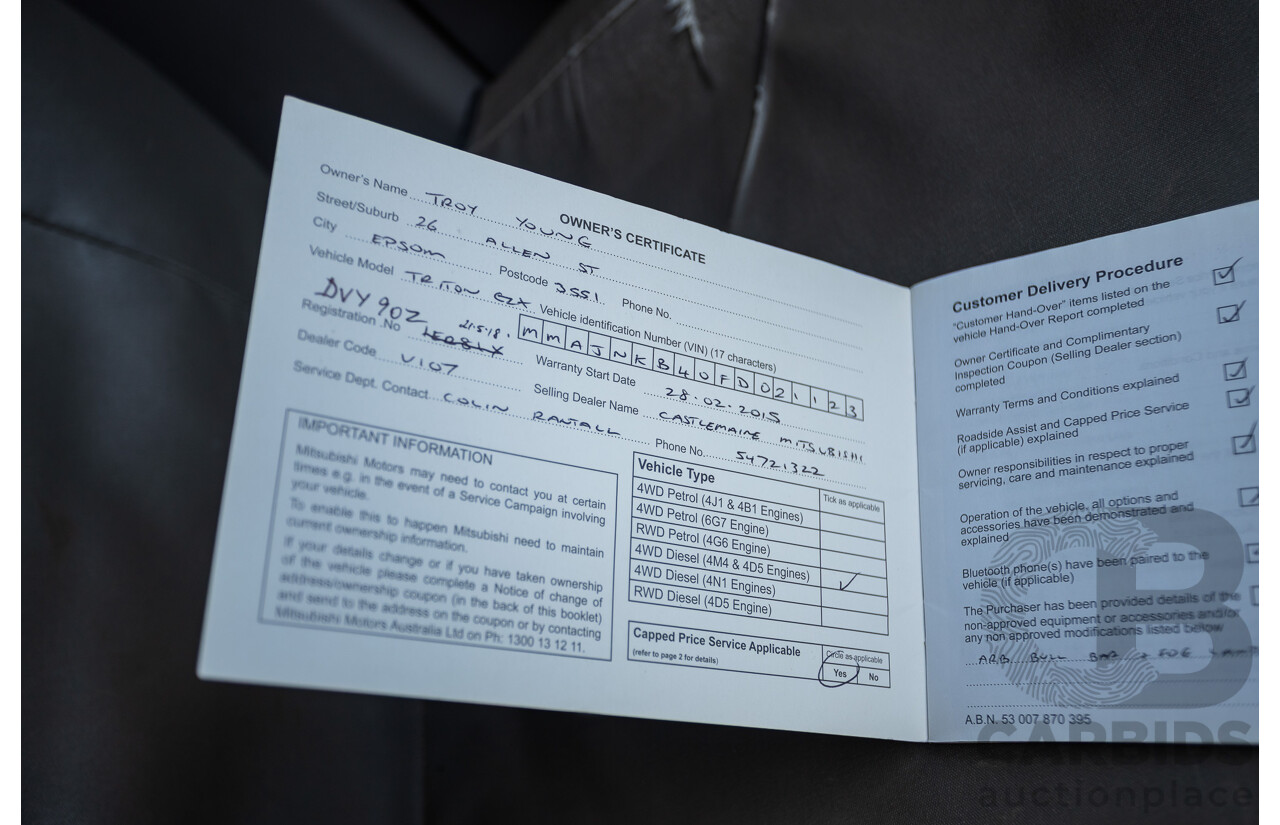 OWNER'S CERTIFICATE
Owner's Name TROY YOUNG
Street/Suburb 26 ALLEN ST
City EPSOM Postcode 3551 Phone No.
Vehicle Model TRITON Vehicle identification Number (VIN) (17 characters)
DVY90Z 21.5.18.
Registration No MMAJNKB40FD021123
Dealer Code V107 Warranty Start Date 28.02.2015
Service Dept. Contact COLIN RANTALL Selling Dealer Name CASTLEMAINE MITSUBISHI
Phone No. 54721322
IMPORTANT INFORMATION
Mitsubishi Motors may need to contact you at certain
times e.g. in the event of a Service Campaign involving
your vehicle.
To enable this to happen Mitsubishi need to maintain
current ownership information.
If your details change or if you have taken ownership
of the vehicle please complete a Notice of change of
address/ownership coupon (in the back of this booklet)
and send to the address on the coupon or by contacting
Mitsubishi Motors Australia Ltd on Ph: 1300 13 12 11.
Vehicle Type Tick as applicable
4WD Petrol (4J1 & 4B1 Engines)
4WD Petrol (6G7 Engine)
RWD Petrol (4G6 Engine)
4WD Diesel (4M4 & 4D5 Engines)
4WD Diesel (4N1 Engines)
RWD Diesel (4D5 Engine)
Capped Price Service Applicable Circle as applicable
(refer to page 2 for details) Yes No
Customer Delivery Procedure
"Customer Hand-Over" items listed on the
vehicle Hand-Over Report completed
Owner Certificate and Complimentary
Inspection Coupon (Selling Dealer section)
completed
Warranty Terms and Conditions explained
Roadside Assist and Capped Price Service
(if applicable) explained
Owner responsibilities in respect to proper
servicing, care and maintenance explained
Operation of the vehicle, all options and
accessories have been demonstrated and
explained
Bluetooth phone(s) have been paired to the
vehicle (if applicable)
The Purchaser has been provided details of the
non-approved equipment or accessories and/or
any non approved modifications listed below
ARB BULL BAR + FOG
A.B.N. 53 007 870 395
CARBIDS
auctionplace